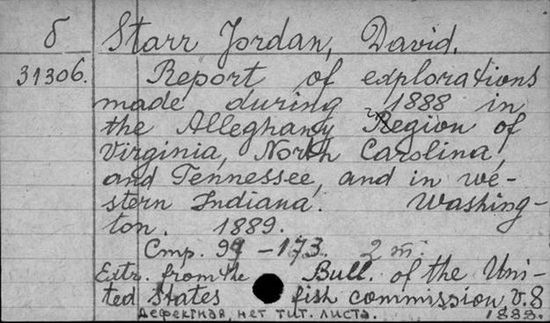 б Starr Jordan, David.
31306. Report of explorations
made during 1888 in
the Alleghany Region of
Virginia, North Carolina,
and Tennessee, and in we-
stern Indiana. Washing-
ton. 1889.
Стр. 97 - 173. 2 т.
Extr. from the Bull. of the Uni-
ted States fish commission, v. 8
Дефектная, нет тит. листа. 1888.